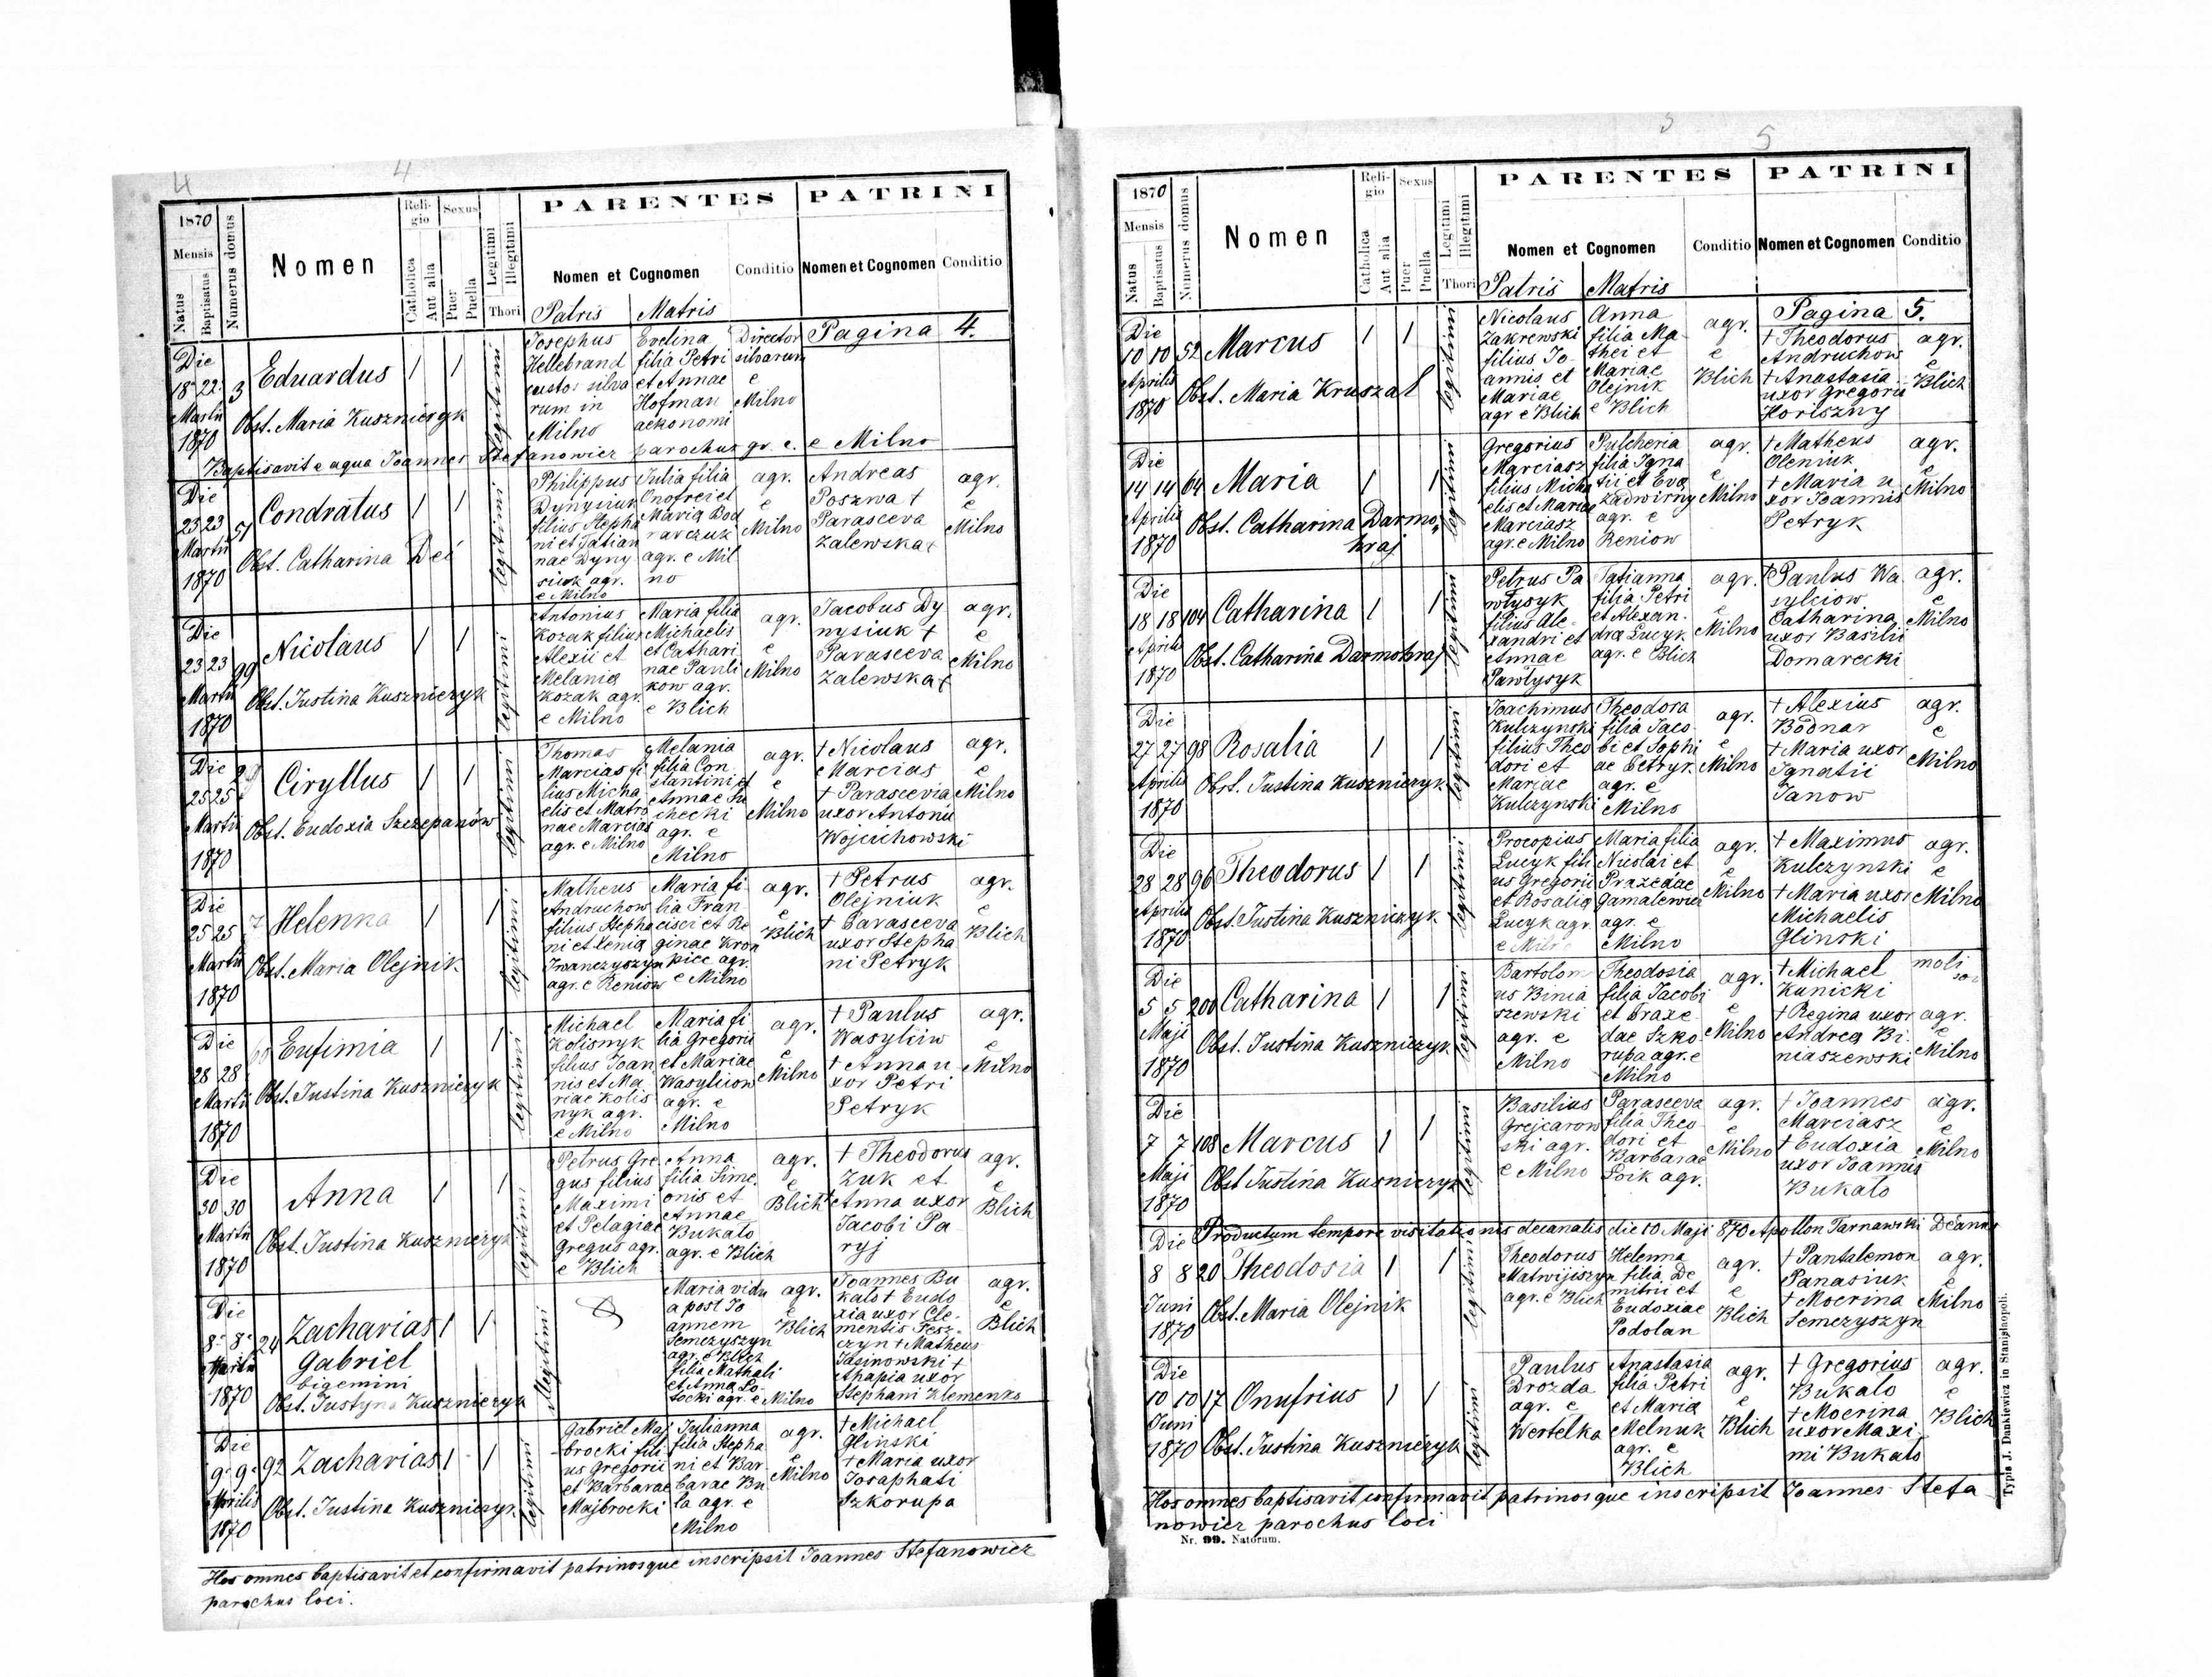 4
4
1870
Mensis
Natus
Baptisatus
Numerus domus
Nomen
Religio
Catholica
Aut alia
Sexus
Puer
Puella
Legitimi
Illegitimi
Thori
PARENTES
Nomen et Cognomen
Patris
Matris
Conditio
PATRINI
Nomen et Cognomen
Conditio
Pagina 4.
Die
18 22
Martii
1870
3
Eduardus
1 1
legitimi
Obst. Maria Kuszniezyk
Josephus
Hellebrand
custos silva
rum in
Milno
Evelina
filia Petri
et Annae
Hofman
aekonomi
Director
silvarum
e
Milno
Baptisavit e aqua Joannes Stefanowicz parochus gr. c. e Milno
Die
23 23
Martii
1870
51
Condratus
1 1
legitimi
Obst. Catharina Deć
Philippus
Dynysiuk
filius Stepha
ni et Tatian
nae Dyny
siuk agr.
e Milno
Julia filia
Onofrei et
Maria Bod
narczuk
agr. e Mil
no
agr.
e
Milno
Andreas
Poszwa †
Parasceva
Zalewska †
agr.
e
Milno
Die
23 23
Martii
1870
99
Nicolaus
1 1
legitimi
Obst. Justina Kuszniezyk
Antonius
Kozak filius
Alexii et
Melania
Kozak agr.
e Milno
Maria filia
Michaelis
et Cathari
nae Pauli
kow agr.
e Blich
agr.
e
Milno
Jacobus Dy
nysiuk †
Parasceva
Zalewska †
agr.
e
Milno
Die
25 25
Martii
1870
Ciryllus
1 1
legitimi
Obst. Eudoxia Szczepanów
Thomas
Marcias fi
lius Micha
elis et Matro
nae Marcias
agr. e Milno
Melania
filia Con
stantini et
Annae Su
checki
agr. e
Milno
agr.
e
Milno
† Nicolaus
Marcias
† Parascevia
uxor Antonii
Wojcichowski
agr.
e
Milno
Die
25 25
Martii
1870
7
Helenna
1 1
legitimi
Obst. Maria Olejnik
Matheus
Andruchow
filius Stepha
ni et Xenia
Iwanczyszyn
agr. e Reniow
Maria fi
lia Fran
cisci et Re
ginae Kron
picc agr.
e Milno
agr.
e
Blich
† Petrus
Olejniuk
† Parasceva
uxor Stepha
ni Petryk
agr.
e
Blich
Die
28 28
Martii
1870
Eufimia
1 1
legitimi
Obst. Justina Kuszniezyk
Michael
Kolisnyk
filius Joan
nis et Ma
riae Kolis
nyk agr.
e Milno
Maria fi
lia Gregorii
et Mariae
Wasyliow
agr. e
Milno
agr.
e
Milno
† Paulus
Wasyliw
† Anna u
xor Petri
Petryk
agr.
e
Milno
Die
30 30
Martii
1870
Anna
1 1
legitimi
Obst. Justina Kuszniezyk
Petrus Gre
gus filius
Maximi
et Pelagiae
Gregus agr.
e Blich
Anna
filia Sime
onis et
Annae
Bukato
agr. e Blich
agr.
e
Blich
† Theodorus
Zuk et
† Anna uxor
Jacobi Pa
ryj
agr.
e
Blich
Die
8 8
Martii
1870
24
Zacharias
Gabriel
bigemini
1 1
illegitimi
Obst. Justyna Kuszniezyk
Maria vidu
a post Jo
annem
Semczyszyn
agr. e Blich
filia Mathali
et Anna Lo
tocki agr. e Milno
agr.
e
Blich
Joannes Bu
kato † Eudo
xia uxor Cle
mentis Fesz
czyn † Matheus
Jasinowski †
Ahapia uxor
Stephani Klemenko
agr.
e
Blich
Die
9 9
Aprilis
1870
92
Zacharias
1 1
legitimi
Obst. Justina Kuszniezyk
Gabriel Maj
brocki fili
us Gregorii
et Barbarae
Majbrocki
Julianna
filia Stepha
ni et Bar
barae Bu
la agr. e
Milno
agr.
e
Milno
† Michael
Glinski
† Maria uxor
Josaphati
Szkorupa
Hos omnes baptisavit et confirmavit patrinosque inscripsit Joannes Stefanowicz
parochus loci.
5
5
1870
Mensis
Natus
Baptisatus
Numerus domus
Nomen
Religio
Catholica
Aut alia
Sexus
Puer
Puella
Legitimi
Illegitimi
Thori
PARENTES
Nomen et Cognomen
Patris
Matris
Conditio
PATRINI
Nomen et Cognomen
Conditio
Pagina 5.
Die
10 10
Aprilis
1870
52
Marcus
1 1
legitimi
Obst. Maria Kruszal
Nicolaus
Zakrewski
filius Jo
annis et
Mariae
agr e Blich
Anna
filia Ma
thei et
Mariae
Olejnik
e Blich
agr.
e
Blich
† Theodorus
Andruchow
† Anastasia
uxor Gregorii
Horiszny
agr.
e
Blich
Die
14 14
Aprilis
1870
64
Maria
1 1
legitimi
Obst. Catharina Darmo
hraj
Gregorius
Marciasz
filius Micha
elis et Mariae
Marciasz
agr. e Milno
Pulcheria
filia Igna
tii et Eva
Zadwirny
agr. e
Reniow
agr.
e
Milno
† Matheus
Oleniuk
† Maria u
xor Joannis
Petryk
agr.
e
Milno
Die
18 18
Aprilis
1870
104
Catharina
1 1
legitimi
Obst. Catharina Darmohraj
Petrus Pa
włysyk
filius Ale
xandri et
Annae
Pawłysyk
Tatianna
filia Petri
et Alexan
dra Lucyk
agr. e Blich
agr.
e
Milno
† Paulus Wa
sylciow
Catharina
uxor Basilii
Domarecki
agr.
e
Milno
Die
27 27
Aprilis
1870
98
Rosalia
1 1
legitimi
Obst. Justina Kuszniezyk
Joachimus
Kulczynski
filius Theo
dori et
Mariae
Kulczynski
Theodora
filia Jaco
bi et Sophi
ae Petryk
agr. e
Milno
agr.
e
Milno
† Alexius
Bodnar
† Maria uxor
Ignatii
Janow
agr.
e
Milno
Die
28 28
Aprilis
1870
96
Theodorus
1 1
legitimi
Obst. Justina Kuszniezyk
Procopius
Lucyk fili
us Gregorii
et Rosalia
Lucyk agr.
e Milno
Maria filia
Nicolai et
Praxedae
Gamalewicz
agr. e
Milno
agr.
e
Milno
† Maximus
Kulczynski
† Maria uxor
Michaelis
Glinski
agr.
e
Milno
Die
5 5
Maji
1870
200
Catharina
1 1
legitimi
Obst. Justina Kuszniezyk
Bartolom
us Binia
szewski
agr. e
Milno
Theodosia
filia Jacobi
et Praxe
dae Szko
rupa agr. e
Milno
agr.
e
Milno
† Michael
Kunicki
† Regina uxor
Andrea Bi
niaszewski
moli
agr.
e
Milno
Die
7 7
Maji
1870
108
Marcus
1 1
legitimi
Obst Justina Kusniezyk
Basilius
Grejcarow
ski agr.
e Milno
Parasceva
filia Theo
dori et
Barbarae
Soik agr.
agr.
e
Milno
† Joannes
Marciasz
† Eudoxia
uxor Joannis
Bukato
agr.
e
Milno
Productum tempore visitationis decanalis die 10 Maji 870 Apollon Tarnawski Decanus
Die
8 8
Juni
1870
20
Theodosia
1 1
legitimi
Obst. Maria Olejnik
Theodorus
Matwijiszyn
agr. e Blich
Helenna
filia De
mitrii et
Eudoxiae
Podolan
agr.
e
Blich
† Pantalemon
Panasiuk
† Mocrina
Semczyszyn
agr.
e
Milno
Die
10 10
Juni
1870
17
Onufrius
1 1
legitimi
Obst. Justina Kuszniezyk
Paulus
Drozda
agr. e
Wertelka
Anastasia
filia Petri
et Maria
Melnuk
agr. e
Blich
agr.
e
Blich
† Gregorius
Bukato
† Mocrina
uxor Maxi
mi Bukato
agr.
e
Blich
Hos omnes baptisavit confirmavit patrinosque inscripsit Joannes Stefa
nowicz parochus loci
Nr. 99. Natorum.
Typis J. Dankiewicz in Stanislaopoli.